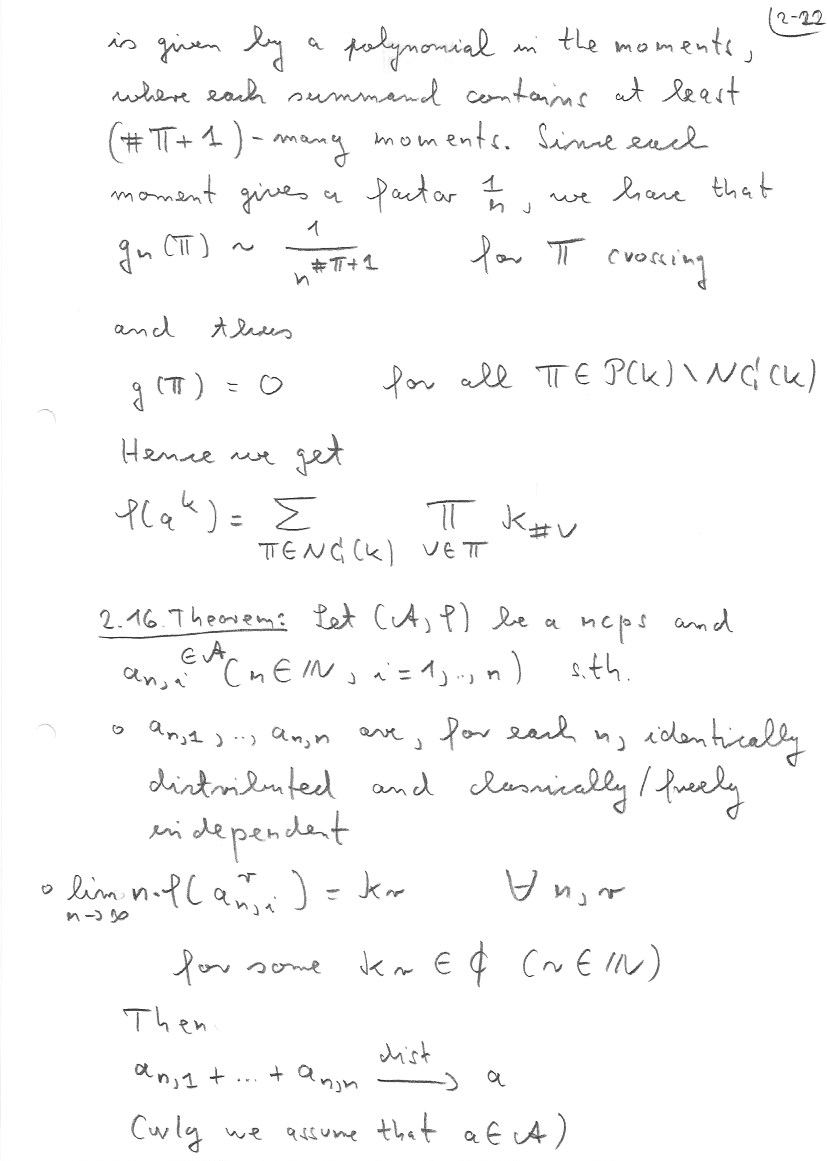 (2-22
is given by a polynomial in the moments,
where each summand contains at least
(#π+1)-many moments. Since each
moment gives a factor 1/n, we have that
gₙ(π) ~ 1/n^{#π+1} for π crossing
and thus
g(π) = 0 for all π ∈ P(k) \ NC(k)
Hence we get
φ(a^k) = ∑_{π∈NC(k)} ∏_{V∈π} k_{#V}
2.16. Theorem: Let (A, φ) be a ncps and
a_{n,i} ∈ A (n ∈ ℕ, i = 1,..,n) s.th.
o a_{n,1},.., a_{n,n} are, for each n, identically
distributed and classically/freely
independent
o lim_{n→∞} n·φ(a_{n,i}^r) = k_r ∀ n, r
for some k_r ∈ ℂ (r ∈ ℕ)
Then
a_{n,1} + ... + a_{n,n} —dist→ a
(wlg we assume that a ∈ A)